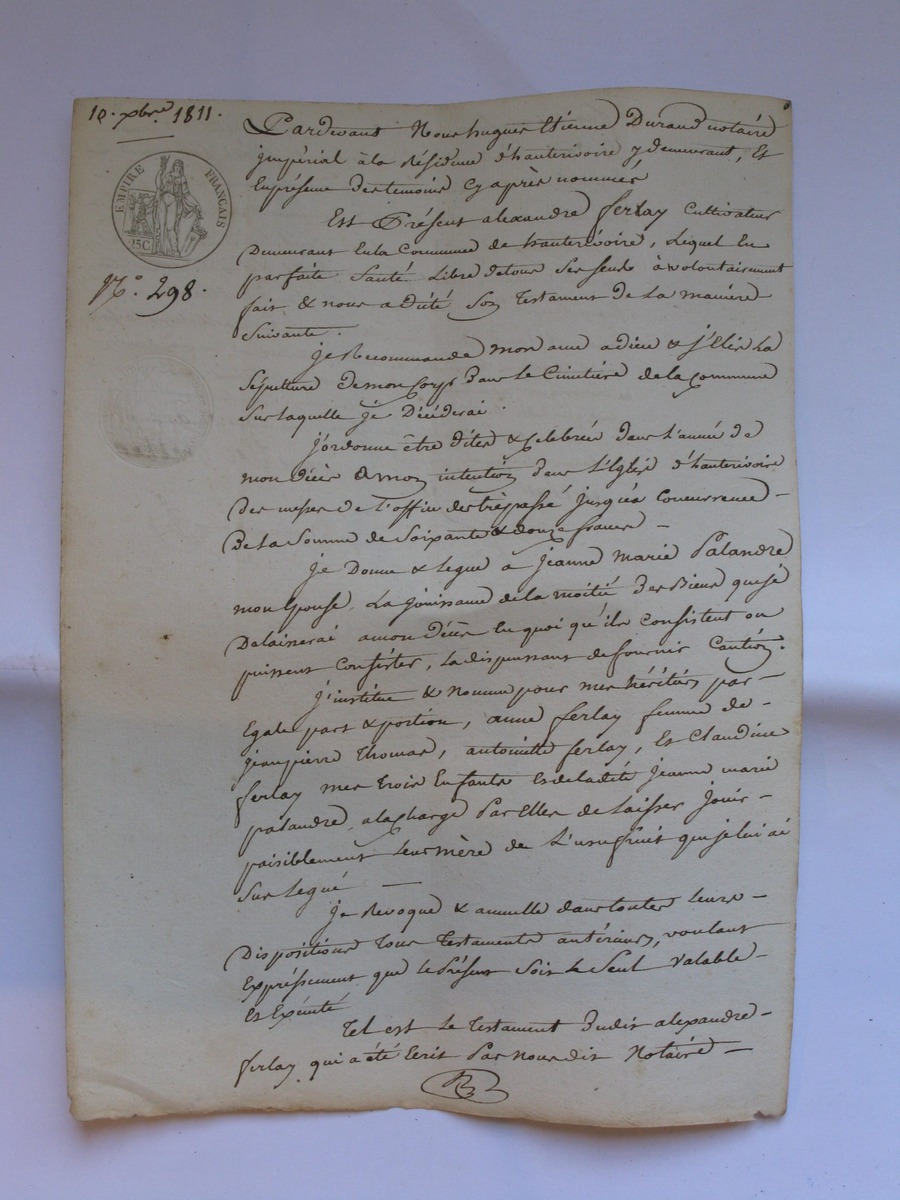 10. xbre. 1811.
EMPIRE FRANÇAIS
25C.
N.° 298.
Pardevant Nous hugues Etienne Durand notaire
impérial à la Résidence d'hauterivoire y demeurant, Et
En présence des temoins cy après nommés
Est Présent alexandre ferlay Cultivateur
Demeurant En la Commune de hauterivoire, Lequel En
parfaite Santé Libre de tous Ses Sends à volontairement
fait & nous a dicté Son Testament de La manière
Suivante.
je Recommande mon ame a dieu & j'Elis La
Sépulture de mon Corps dans le Cimetière de la Commune
Sur laquelle je Décéderai.
J'ordonne être dites & Celebrées dans L'année de
mon décès & à mon intention dans L'Eglise d'hauterivoire
Des messes de L'office des trèpassé jusqu'à Concurrence
De La Somme de Soixante & douze francs
je Donne & Legue à Jeanne Marie Palandre
mon Epouse La Jouissance de la moitié Des Biens que je
Dalaisserai a mon décès En quoi qu'ils Consistent ou
puissent Consister, La dispensant de fournir Caution.
J'institue & Nomme pour mes héritiers par
Egale part & portion, anne ferlay femme de
jeanpierre Thomas, antoinette ferlay, Et Claudine
ferlay mes trois Enfants Et de ladite Jeanne marie
palandre, a la Charge Par Elles de Laisser Jouir
paisiblement Leur mère de L'usufruit que je lui ai
Sus Legué
je Revoque & annulle dans toutes Leurs
Dispositions Tous Testaments antérieurs, voulant
Expréssement que le Présent Soit Le Seul Valable
Et Exécuté
Tel est Le Testament Dudit alexandre
ferlay qui a été Ecrit Par Nous dit Notaire